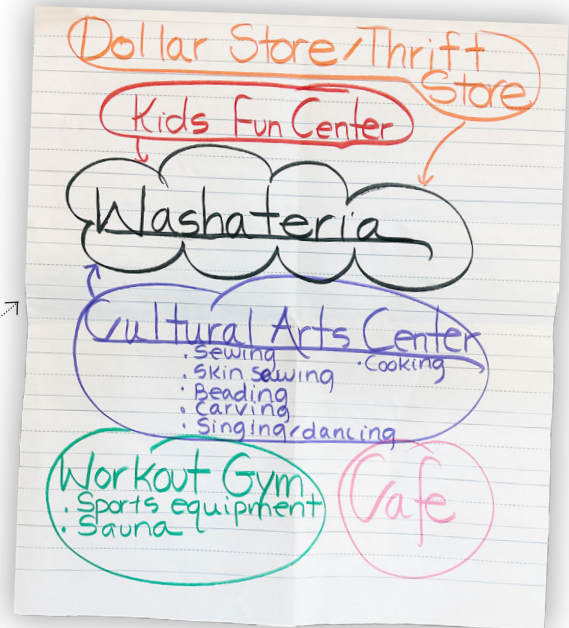 Dollar Store/Thrift
Store
Kids Fun Center
Washateria
Cultural Arts Center
· Sewing
· Cooking
· Skin sewing
· Beading
· Carving
· Singing/dancing
Workout Gym
· Sports equipment
· Sauna
Cafe